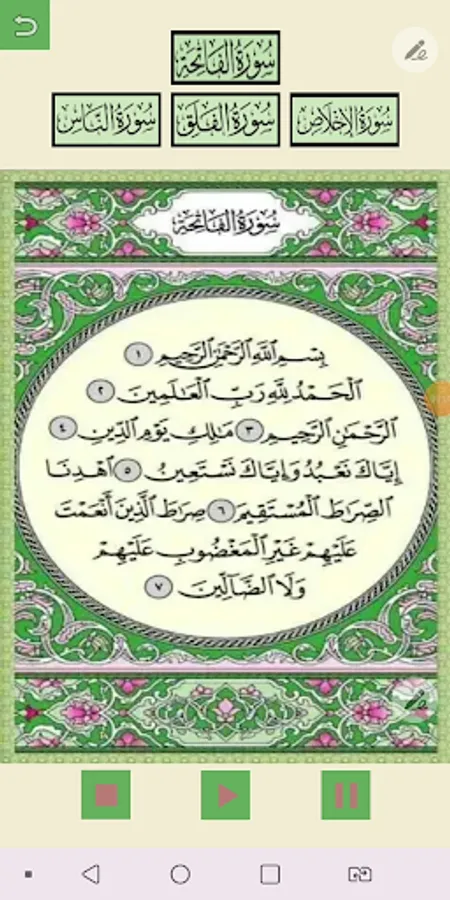 سُورَةُ الفَاتِحَة
سُورَةُ الإِخْلَاص
سُورَةُ الفَلَق
سُورَةُ النَّاس
سُورَةُ الفَاتِحَة
بِسْمِ اللَّهِ الرَّحْمَٰنِ الرَّحِيمِ ١
الْحَمْدُ لِلَّهِ رَبِّ الْعَالَمِينَ ٢
الرَّحْمَٰنِ الرَّحِيمِ ٣ مَالِكِ يَوْمِ الدِّينِ ٤
إِيَّاكَ نَعْبُدُ وَإِيَّاكَ نَسْتَعِينُ ٥ اهْدِنَا
الصِّرَاطَ الْمُسْتَقِيمَ ٦ صِرَاطَ الَّذِينَ أَنْعَمْتَ
عَلَيْهِمْ غَيْرِ الْمَغْضُوبِ عَلَيْهِمْ
وَلَا الضَّالِّينَ ٧